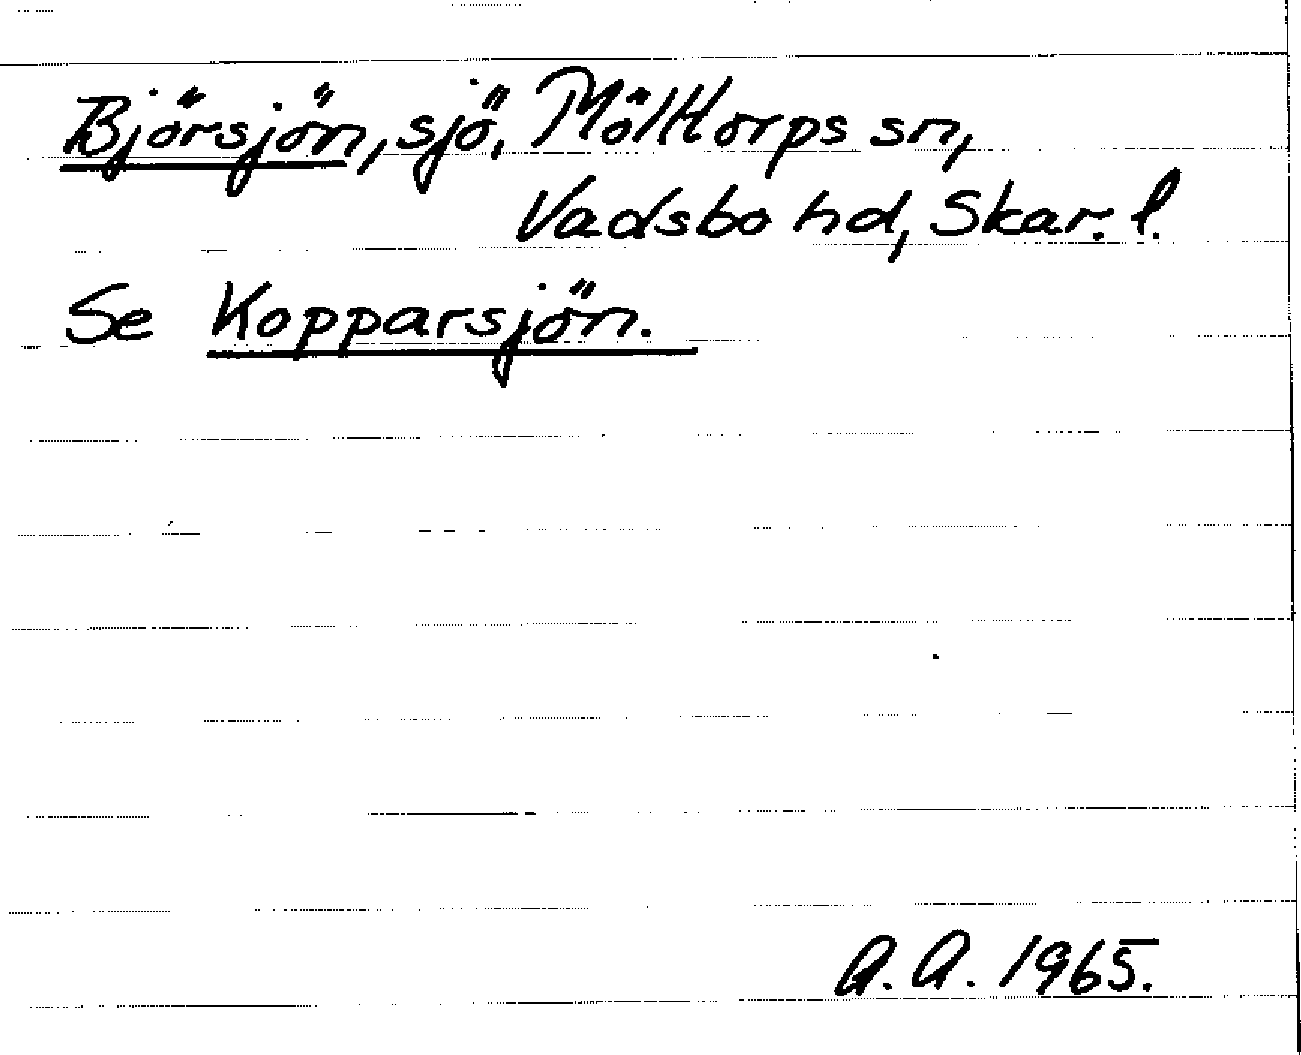 Björsjön, sjö, Mölltorps sn,
Vadsbo hd, Skar. l.
Se Kopparsjön.
A.A. 1965.